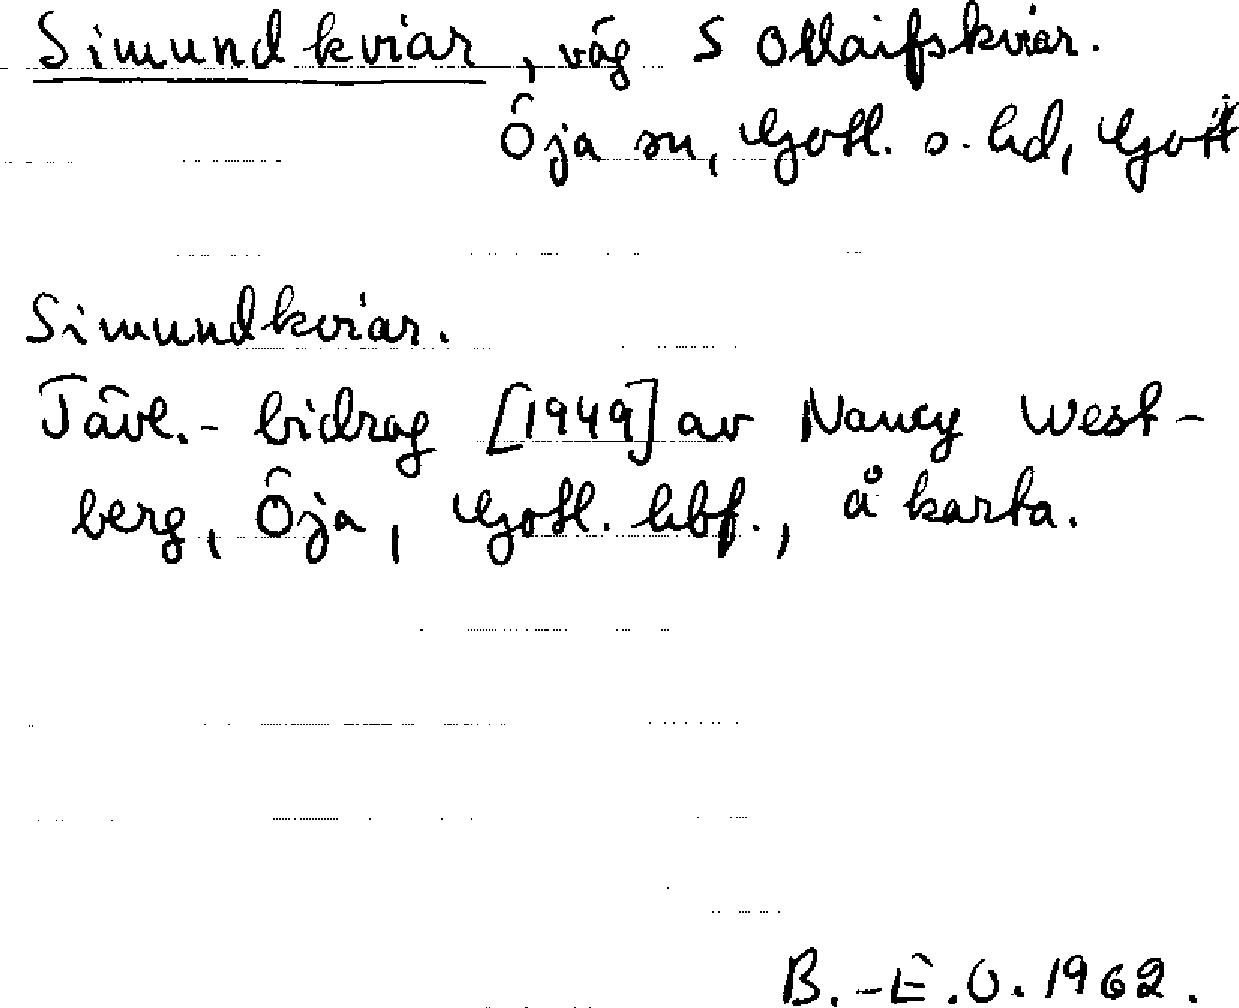 Simundkviar, väg S Ollaifskviar.
Öja sn, Gotl. s. hd, Gotl
Simundkviar.
Tävl.- bidrag [1949] av Nancy West-
berg, Öja, Gotl. hbf., å karta.
B.-E.O. 1962.